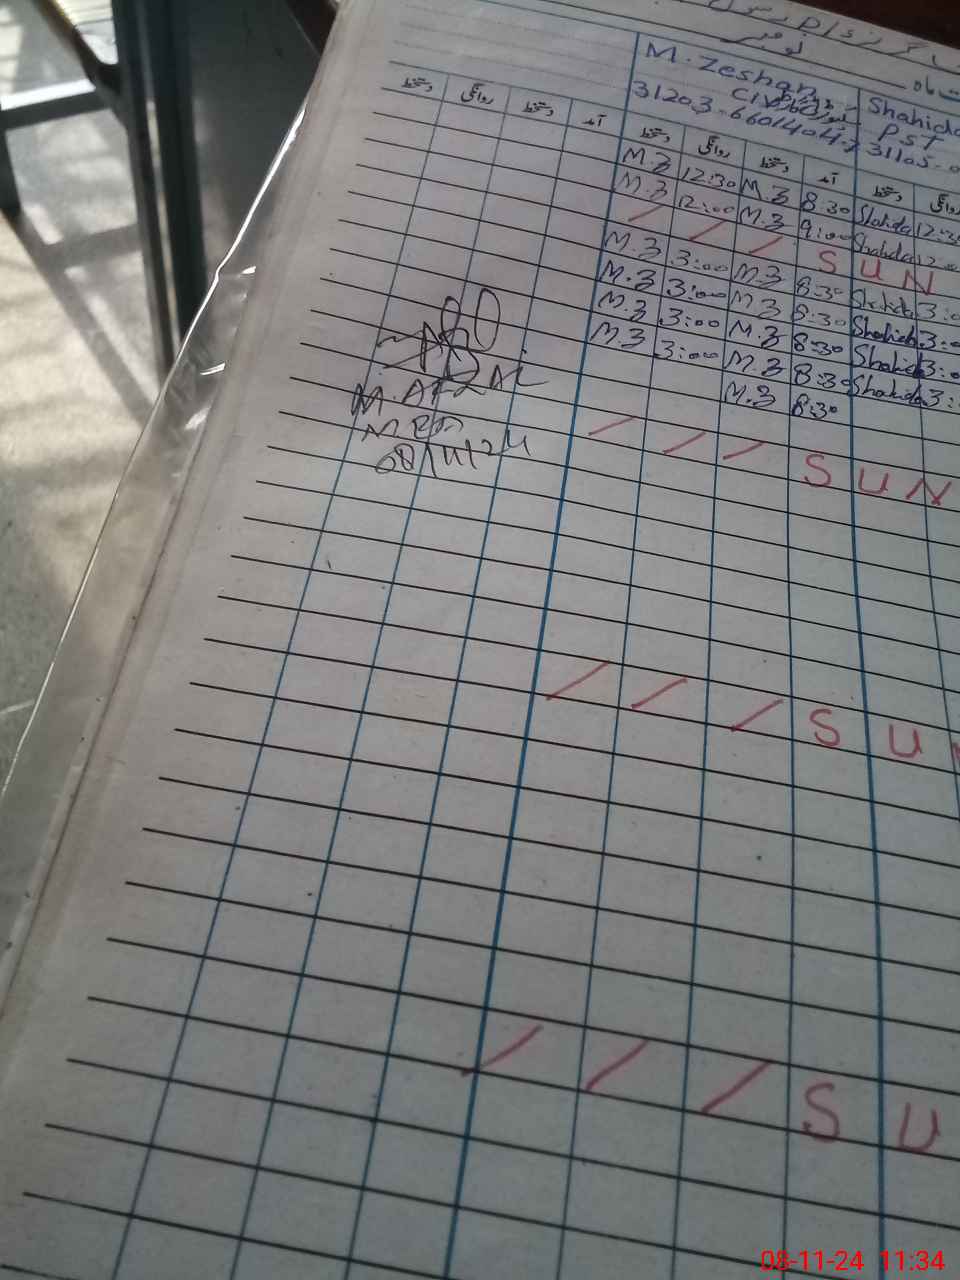 نومبر
M. Zeshan Shahida
PST
31203-6601404-7 31105-0
دستخط روانگی دستخط آمد دستخط روانگی دستخط آمد دستخط روانگی
M.Z 12:30 M.Z 8:30 Shahida 12:30
M.Z 12:00 M.Z 9:00 Shahida 12:00
/ / / S U N
M.Z 3:00 M.Z 8:30 Shahida 3:0
M.Z 3:00 M.Z 8:30 Shahida 3:0
M.Z 3:00 M.Z 8:30 Shahida 3:0
M.Z 3:00 M.Z 8:30 Shahida 3:
M.Z 8:30
M.
08/11/24
/ / / S U N
/ / / S U
/ / / S U
08-11-24 11:34